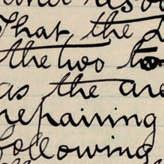 That the
the two
as the are
repairing
following